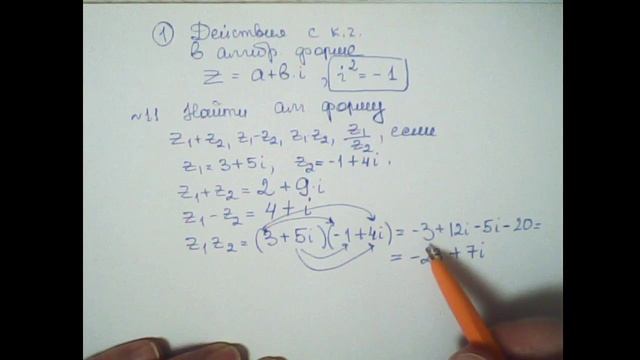 ① Действия с к.ч.
в алгебр. форме
z = a+b·i, i² = -1
~11 Найти алг форму
z₁+z₂, z₁-z₂, z₁·z₂, z₁/z₂, если
z₁=3+5i, z₂=-1+4i.
z₁+z₂ = 2+9·i
z₁-z₂ = 4+i
z₁z₂ = (3+5i)(-1+4i) = -3+12i-5i-20=
= +7i